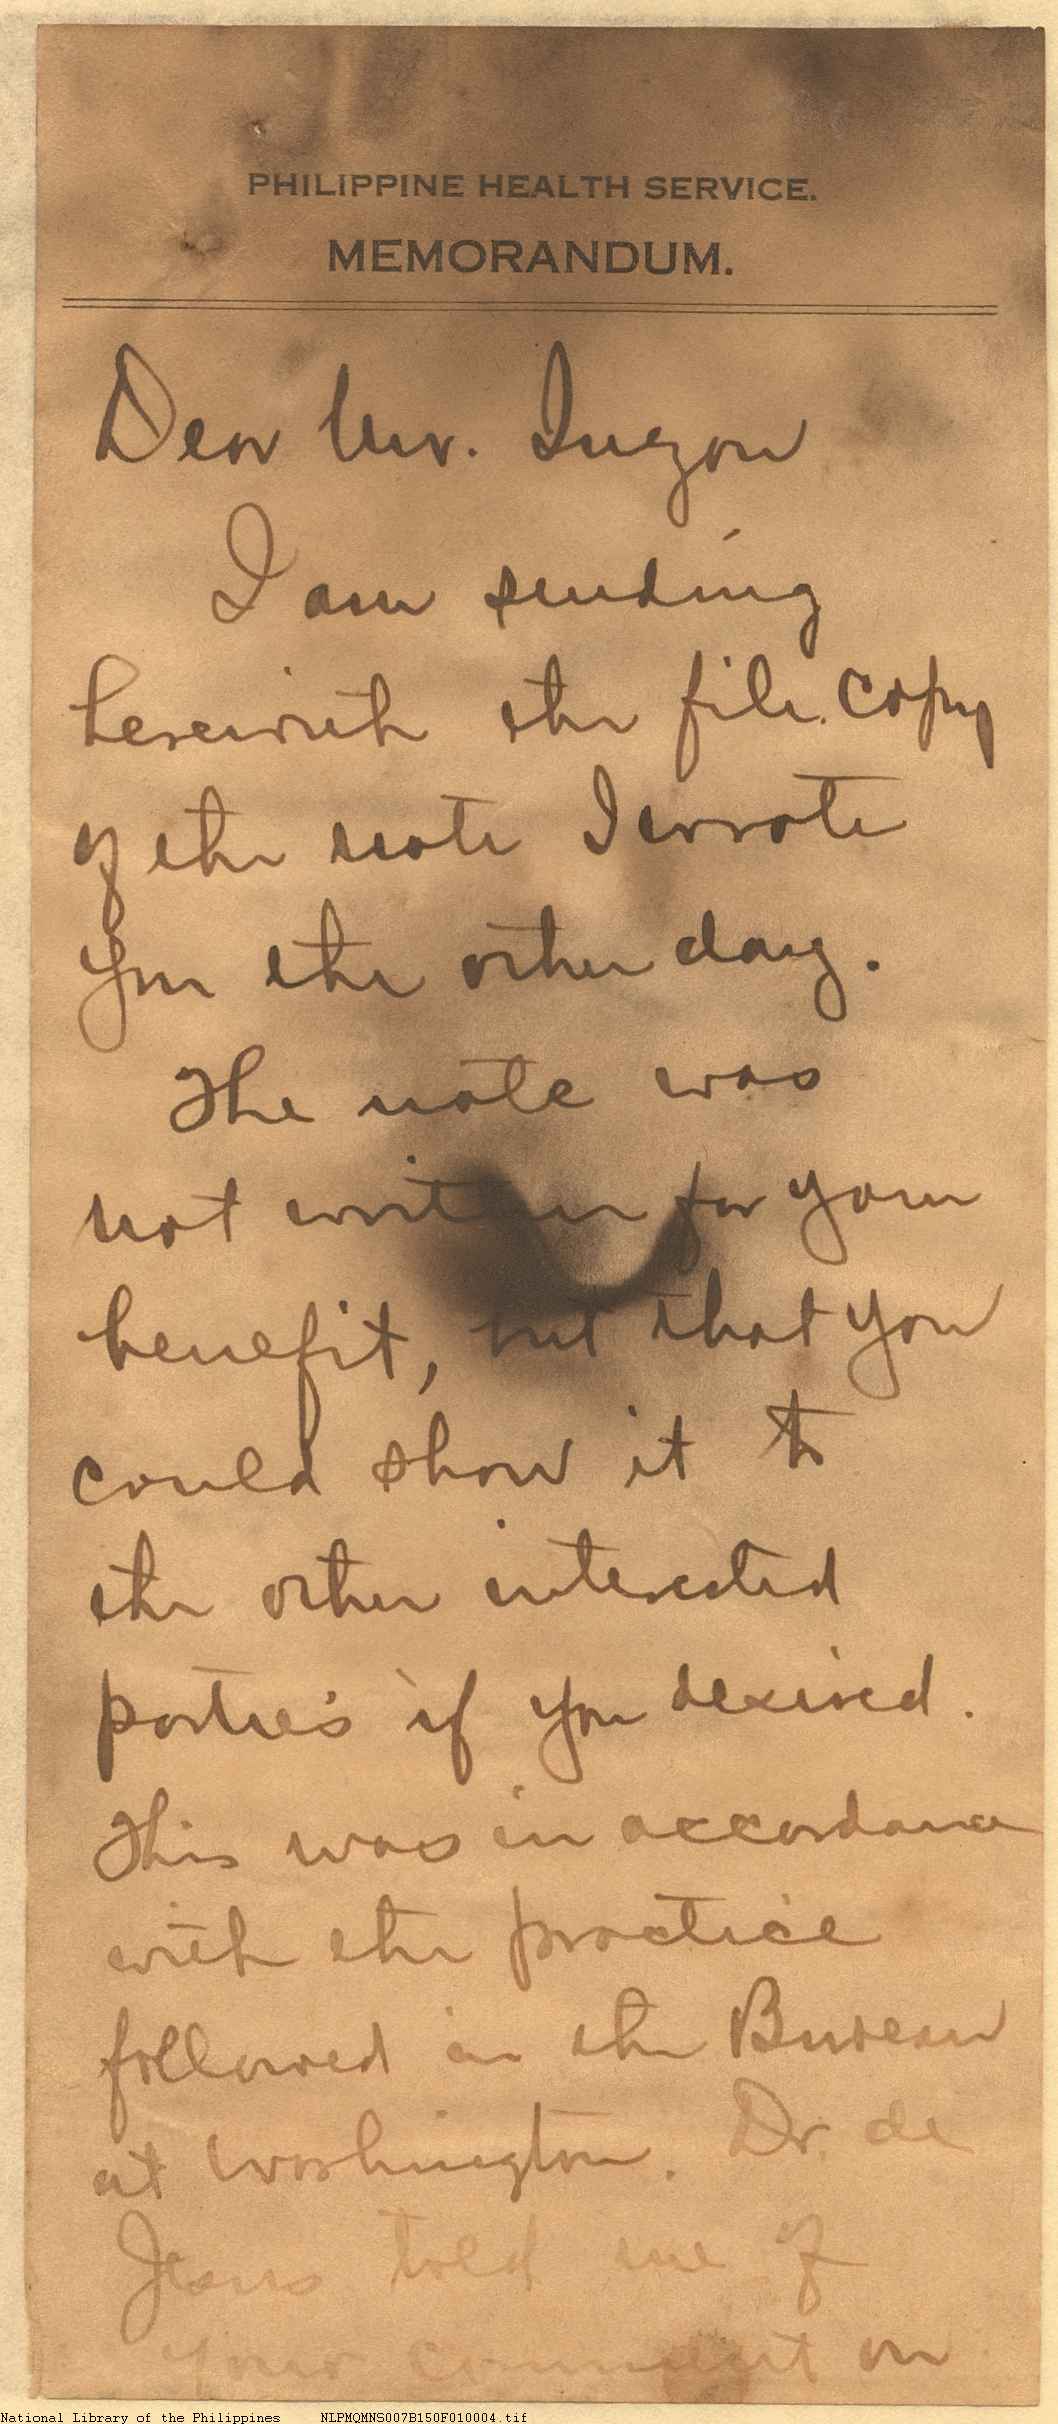 PHILIPPINE HEALTH SERVICE.
MEMORANDUM.
Dear Mr.
I am sending
herewith the file copy
of the note I wrote
you the other day.
The note was
not written for your
benefit, but that you
could show it to
the other interested
parties if you desired.
This was in accordance
with the practice
followed in the Bureau
at Washington. Dr. de
Jesus told me of
your comment on
National Library of the Philippines NLPMQMNS007B150F010004.tif